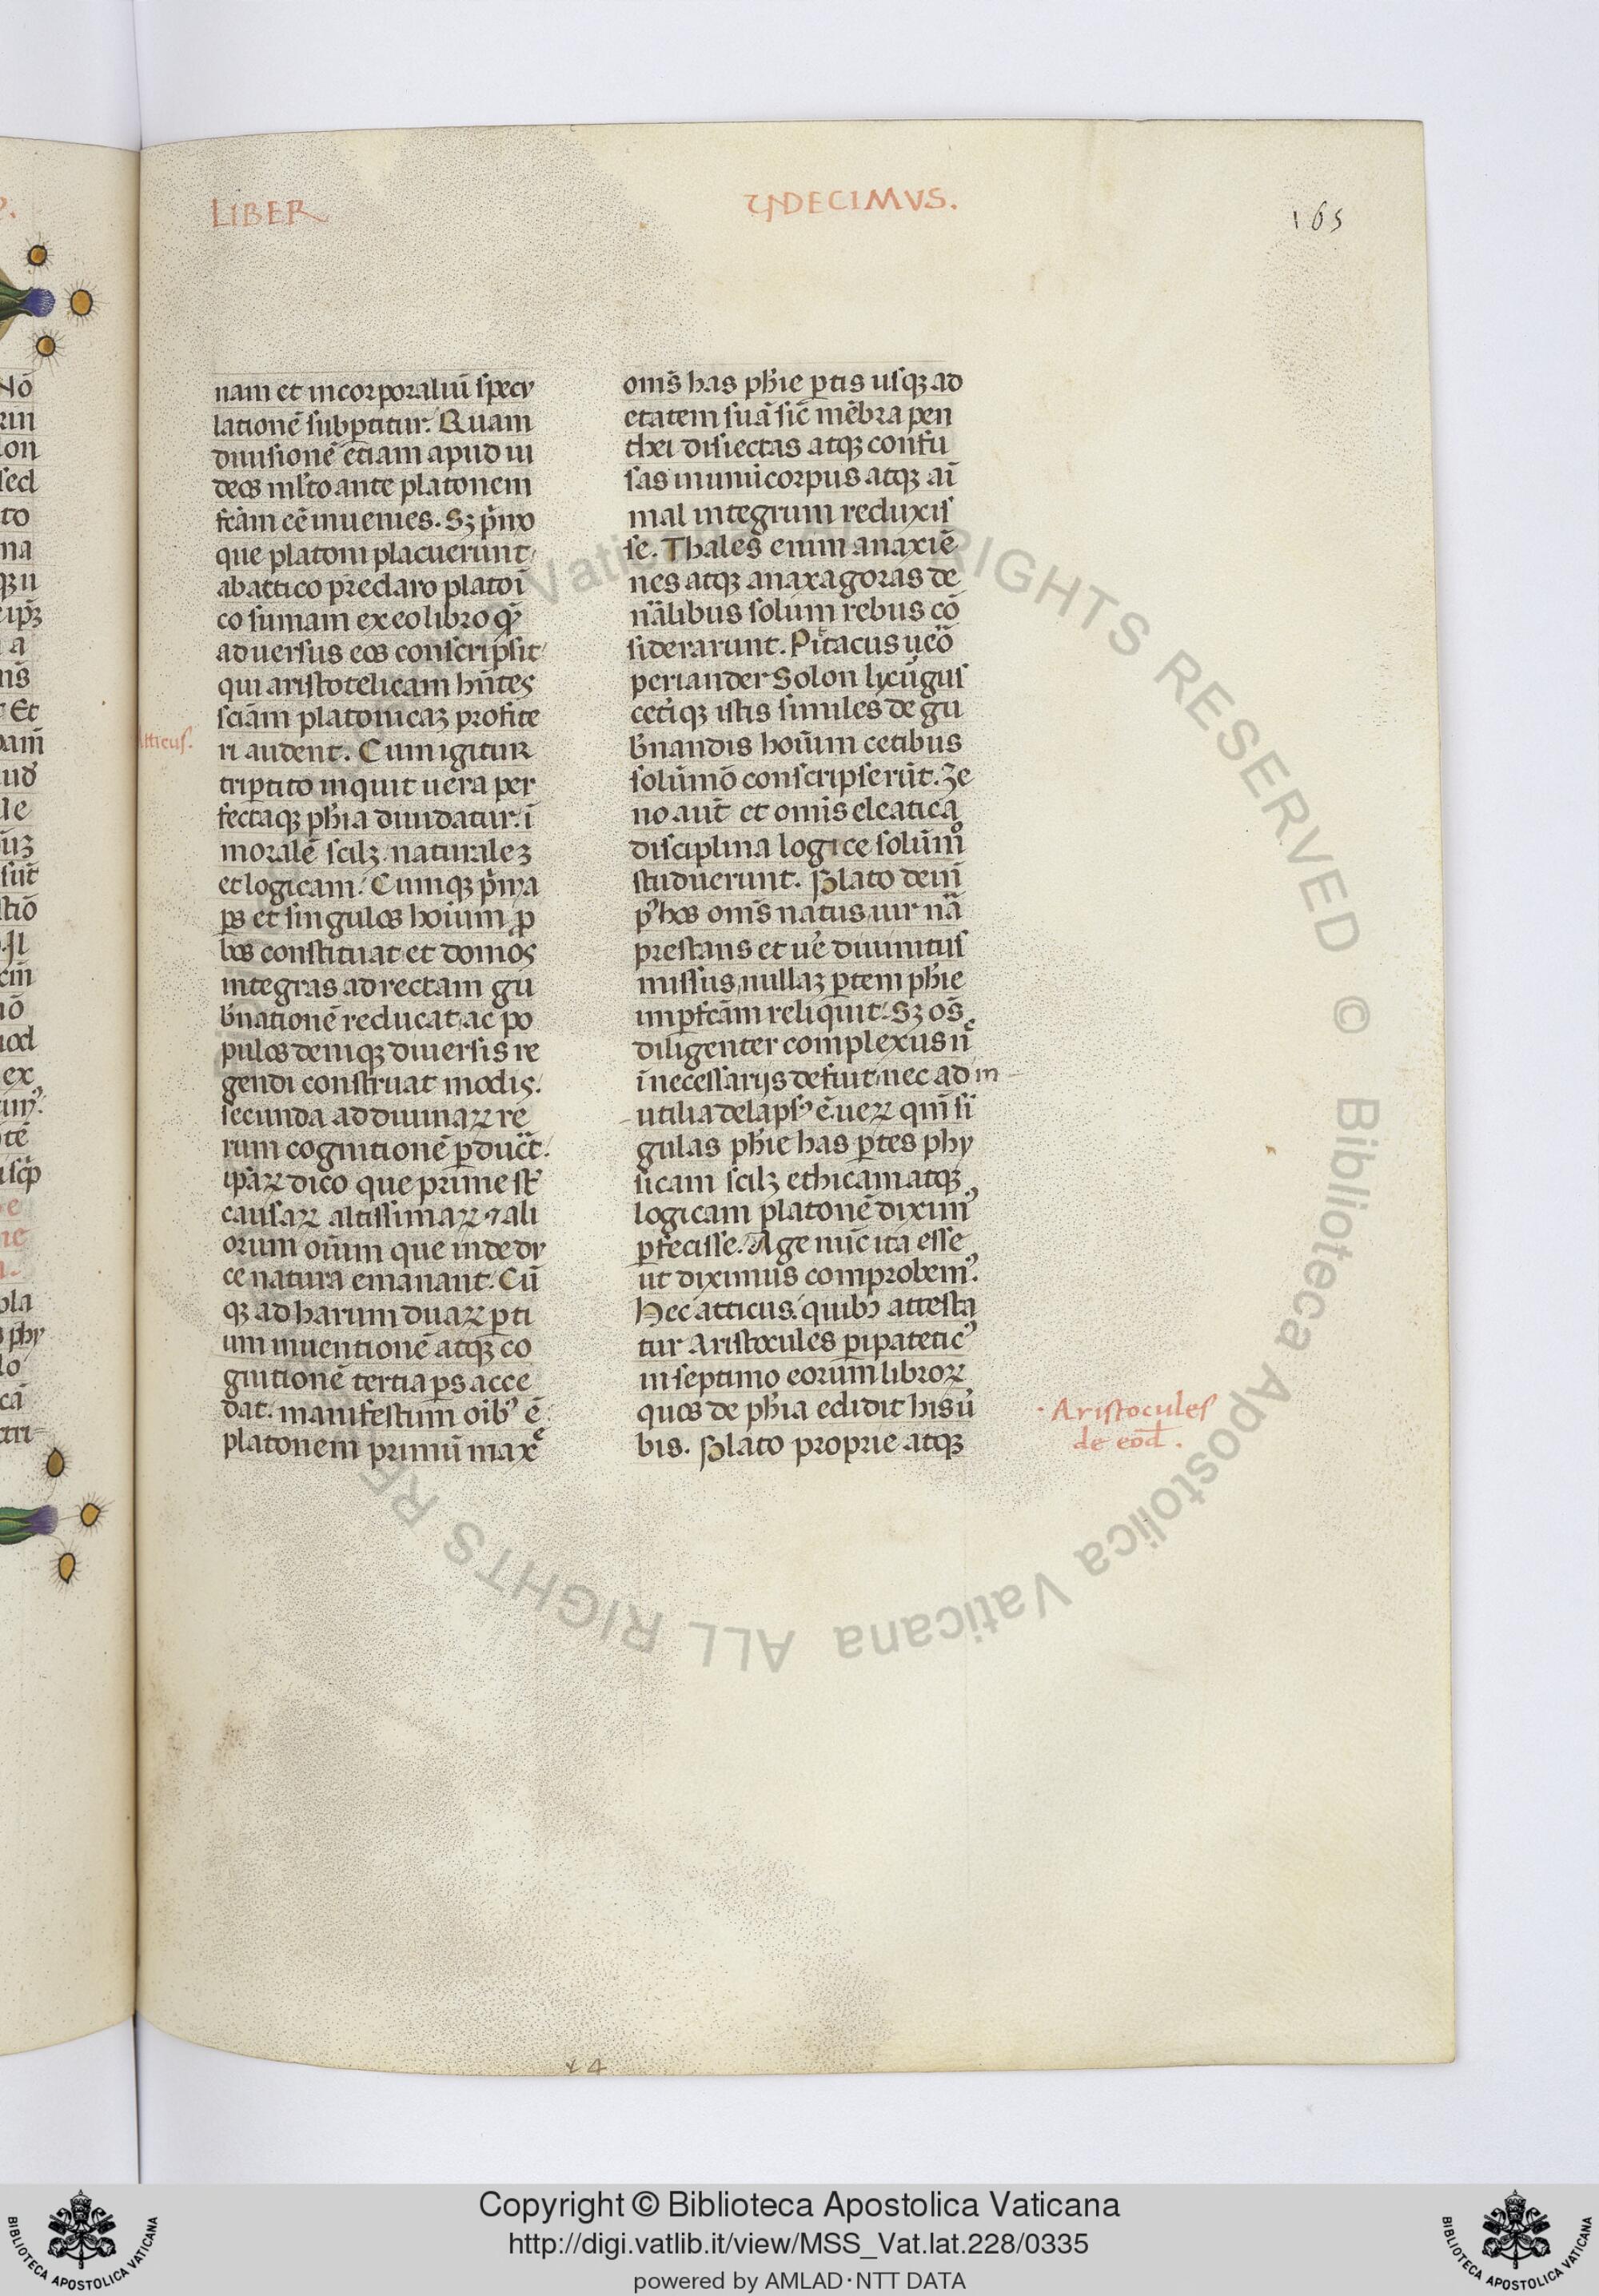 LIBER
VNDECIMVS.
165
nam et incorporaliū specu
lationē subp̱titur. Quam
diuisionē etiam apud iu
deos nisto ante platonem
fc̄am eē inuenies. Sꝫ p̄mo
que platoni placuerunt
ab attico preclaro platoī
co sumam ex eo libro qm̄
aduersus eos conscripsit
qui aristotelicam hn̄tes
sciām platonicaꝫ profite
Atticus.
ri audent. Cum igitur
trip̱tito inquit uera per
fectaqꝫ ph̄ia diuidatur. ī
moralē scilꝫ naturaleꝫ
et logicam. Cumqꝫ p̄ma
ꝑs et singulos hoium ꝓ
bos constituat et domos
integras ad rectam gu
b̄nationē reducat ac po
pulos deniqꝫ diuersis re
gendi construat modis.
secunda ad diuinaꝝ re
rum cognitionē ꝑducat.
ipāꝝ dico que prime st̄
causaꝝ altissimaꝝ ⁊ ali
orum oīum que inde du
ce natura emanant. Cū
qꝫ ad harum duaꝝ ꝑti
um inuentionē atqꝫ co
gnitionē tertia ꝑs acce
dat. manifestum oib' ē
platonem primū maxe
oms̄ has ph̄ie ꝑtis usqꝫ ad
etatem suā sic mēbra pen
thei disiectas atqꝫ confu
sas inunū corpus atqꝫ aī
mal integrum reduxis
se. Thales enim anaxiē
nes atqꝫ anaxagoras de
nālibus solum rebus cō
siderarunt. Pitacus ueō
periander Solon lycurgus
cetiqꝫ istis similes de gu
b̄nandis hoīum cetibus
solūmō conscripserūt. Ze
no aut̄ et omīs eleatica
disciplina logice solūm
studuerunt. Plato dein̄
p'hos oms̄ natus uir nā
prestans et ue diuinitus
missus nullaꝫ ꝑtem ph̄ie
imꝑfcām reliquit. Sꝫ os̄
diligenter complexus n
ī necessarijs defuit nec ad in
utilia delaps' ē. ueꝝ qm̄ si
gulas ph̄ie has ꝑtes phy
sicam scilꝫ ethicam atqꝫ
logicam platonē dixim'
ꝑfecisse. Age nūc ita esse
ut diximus comprobem'.
Hec atticus. quibꝫ attesta
tur Aristocules ꝑipatetic'
in septimo eorum libroꝝ
quos de ph̄ia edidit his ū
bis. Plato proprie atqꝫ
Aristocules
de eod̄.
Copyright © Biblioteca Apostolica Vaticana
http://digi.vatlib.it/view/MSS_Vat.lat.228/0335
powered by AMLAD·NTT DATA